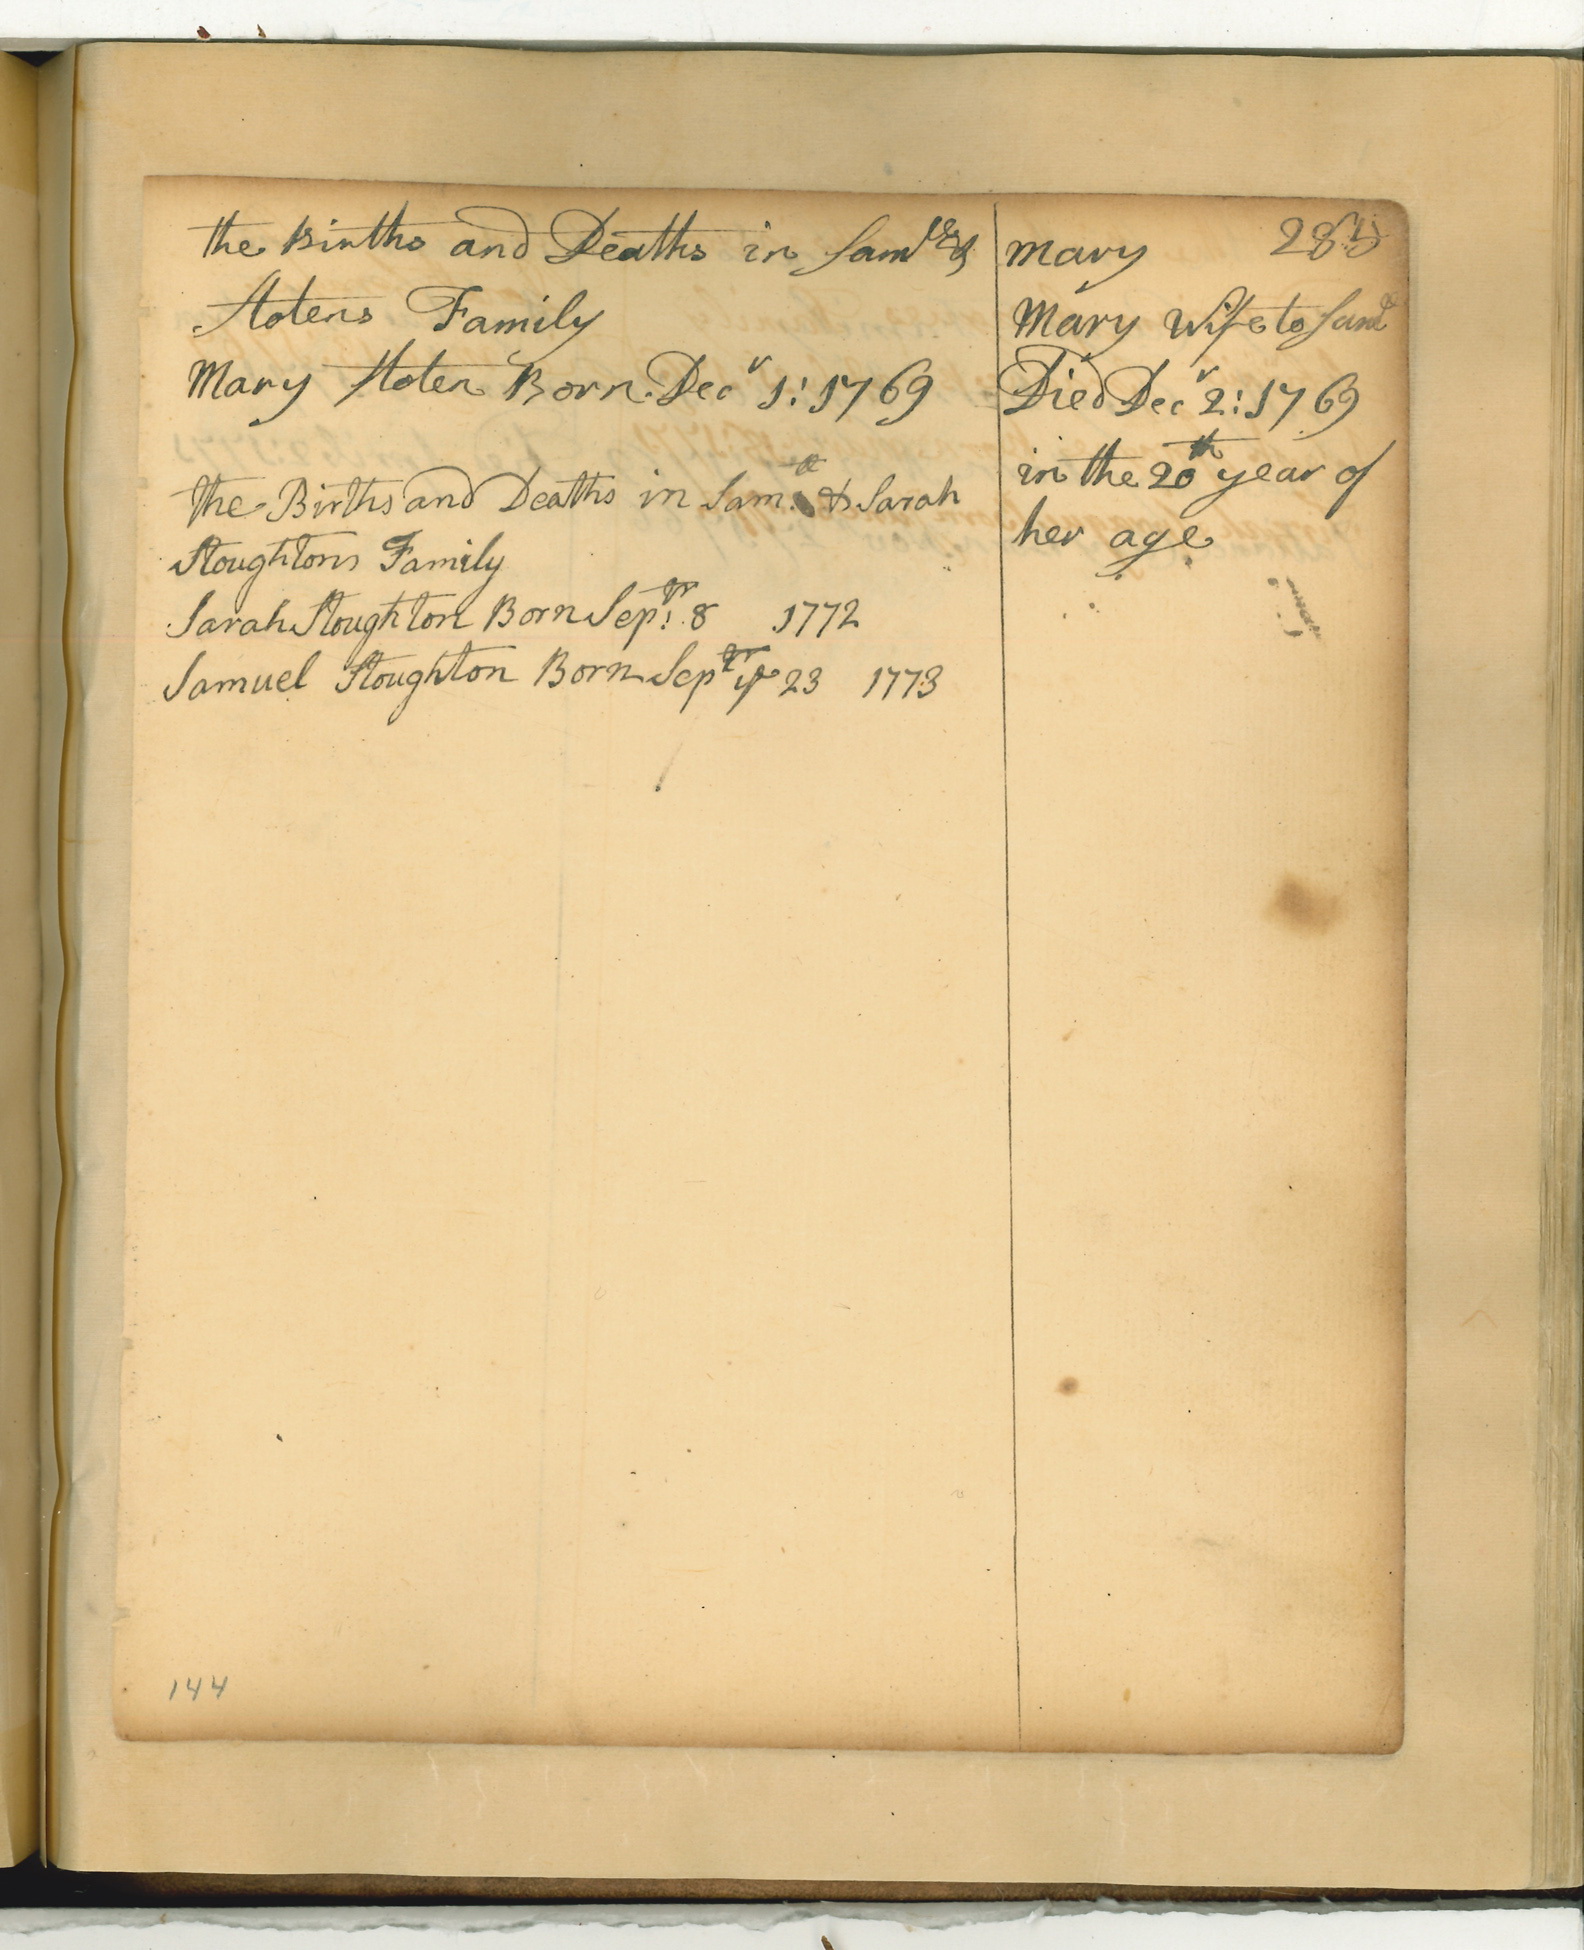 the Births and Deaths in Samll &
Stotens Family
Mary Stoten Born Decr 1: 1769
the Births and Deaths in Samll & Sarah
Stoughtons Family
Sarah Stoughton Born Sepr: 8 1772
Samuel Stoughton Born Septr ye 23 1773
Mary
Mary Wife to Samll
Died Decr 2: 1769
in the 20th year of
her age
144